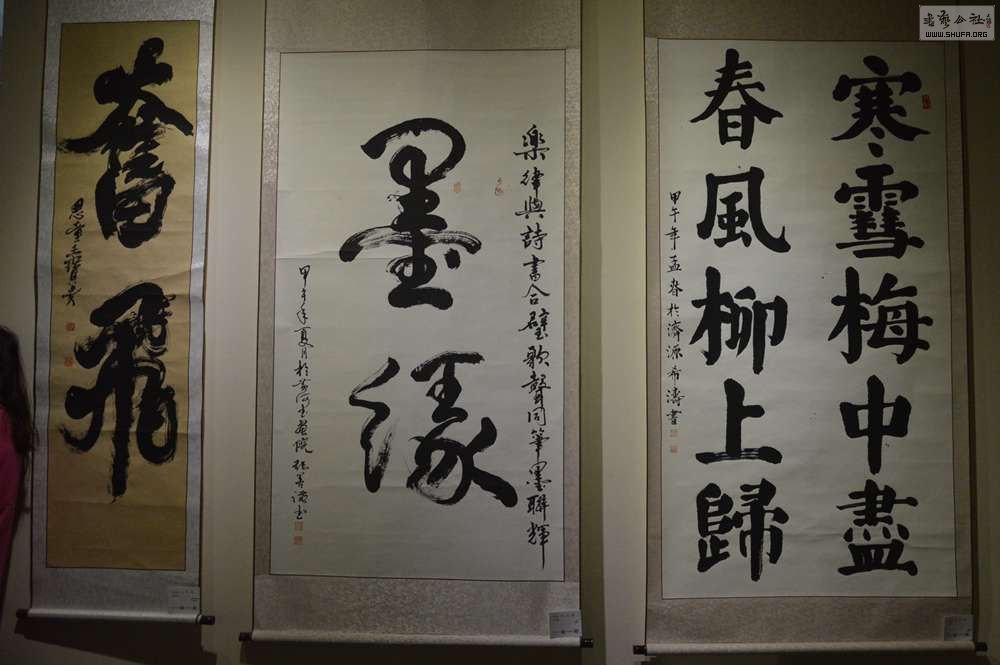 书艺公社
WWW.SHUFA.ORG
寒雪梅中盡
春風柳上歸
甲午年孟春於濟源希濤書
樂律與詩書合璧歌聲同筆墨聯輝
墨緣
甲午年夏月於黃河書畫院
奮飛